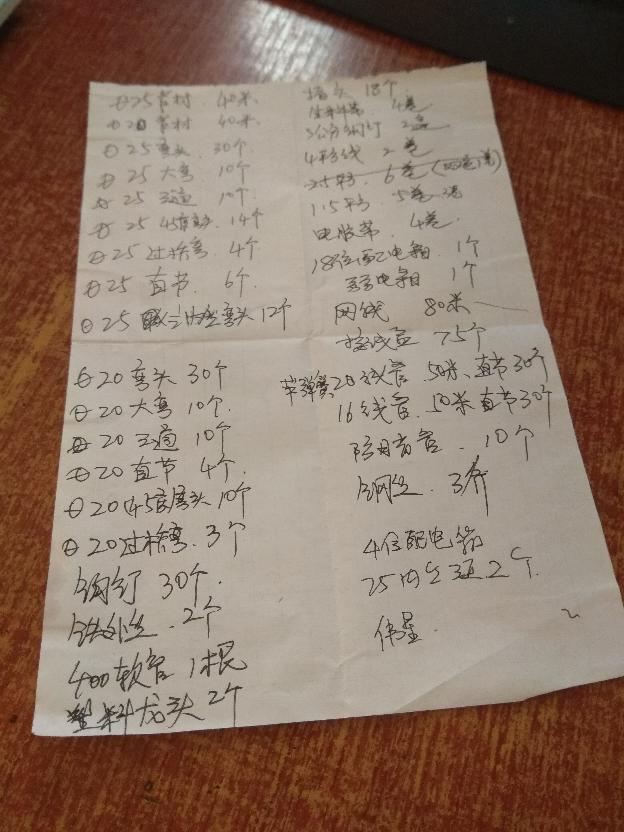 Φ25管材 40米
Φ20管材 40米
Φ25弯头 30个
Φ25大弯 10个
Φ25三通 10个
Φ25 45度弯头 14个
Φ25过桥弯 4个
Φ25直节 6个
Φ25 内丝弯头 12个
Φ20弯头 30个
Φ20大弯 10个
Φ20三通 10个
Φ20直节 4个
Φ20 45度弯头 10个
Φ20过桥弯 3个
钢钉 30个
2个
400软管 1根
塑料龙头 2个
堵头 18个
生料带 4卷
3公分钢钉 2盒
4平方线 2卷
25平方 6卷
1.5平方 5卷
电胶带 4卷
18位配电箱 1个
弱电箱 1个
网线 80米
接线盒 75个
带弹簧20线管 50米 直节30个
16线管 50米 直节30个
10个
钢丝 3个
4位配电箱
25内丝三通 2个
伟星